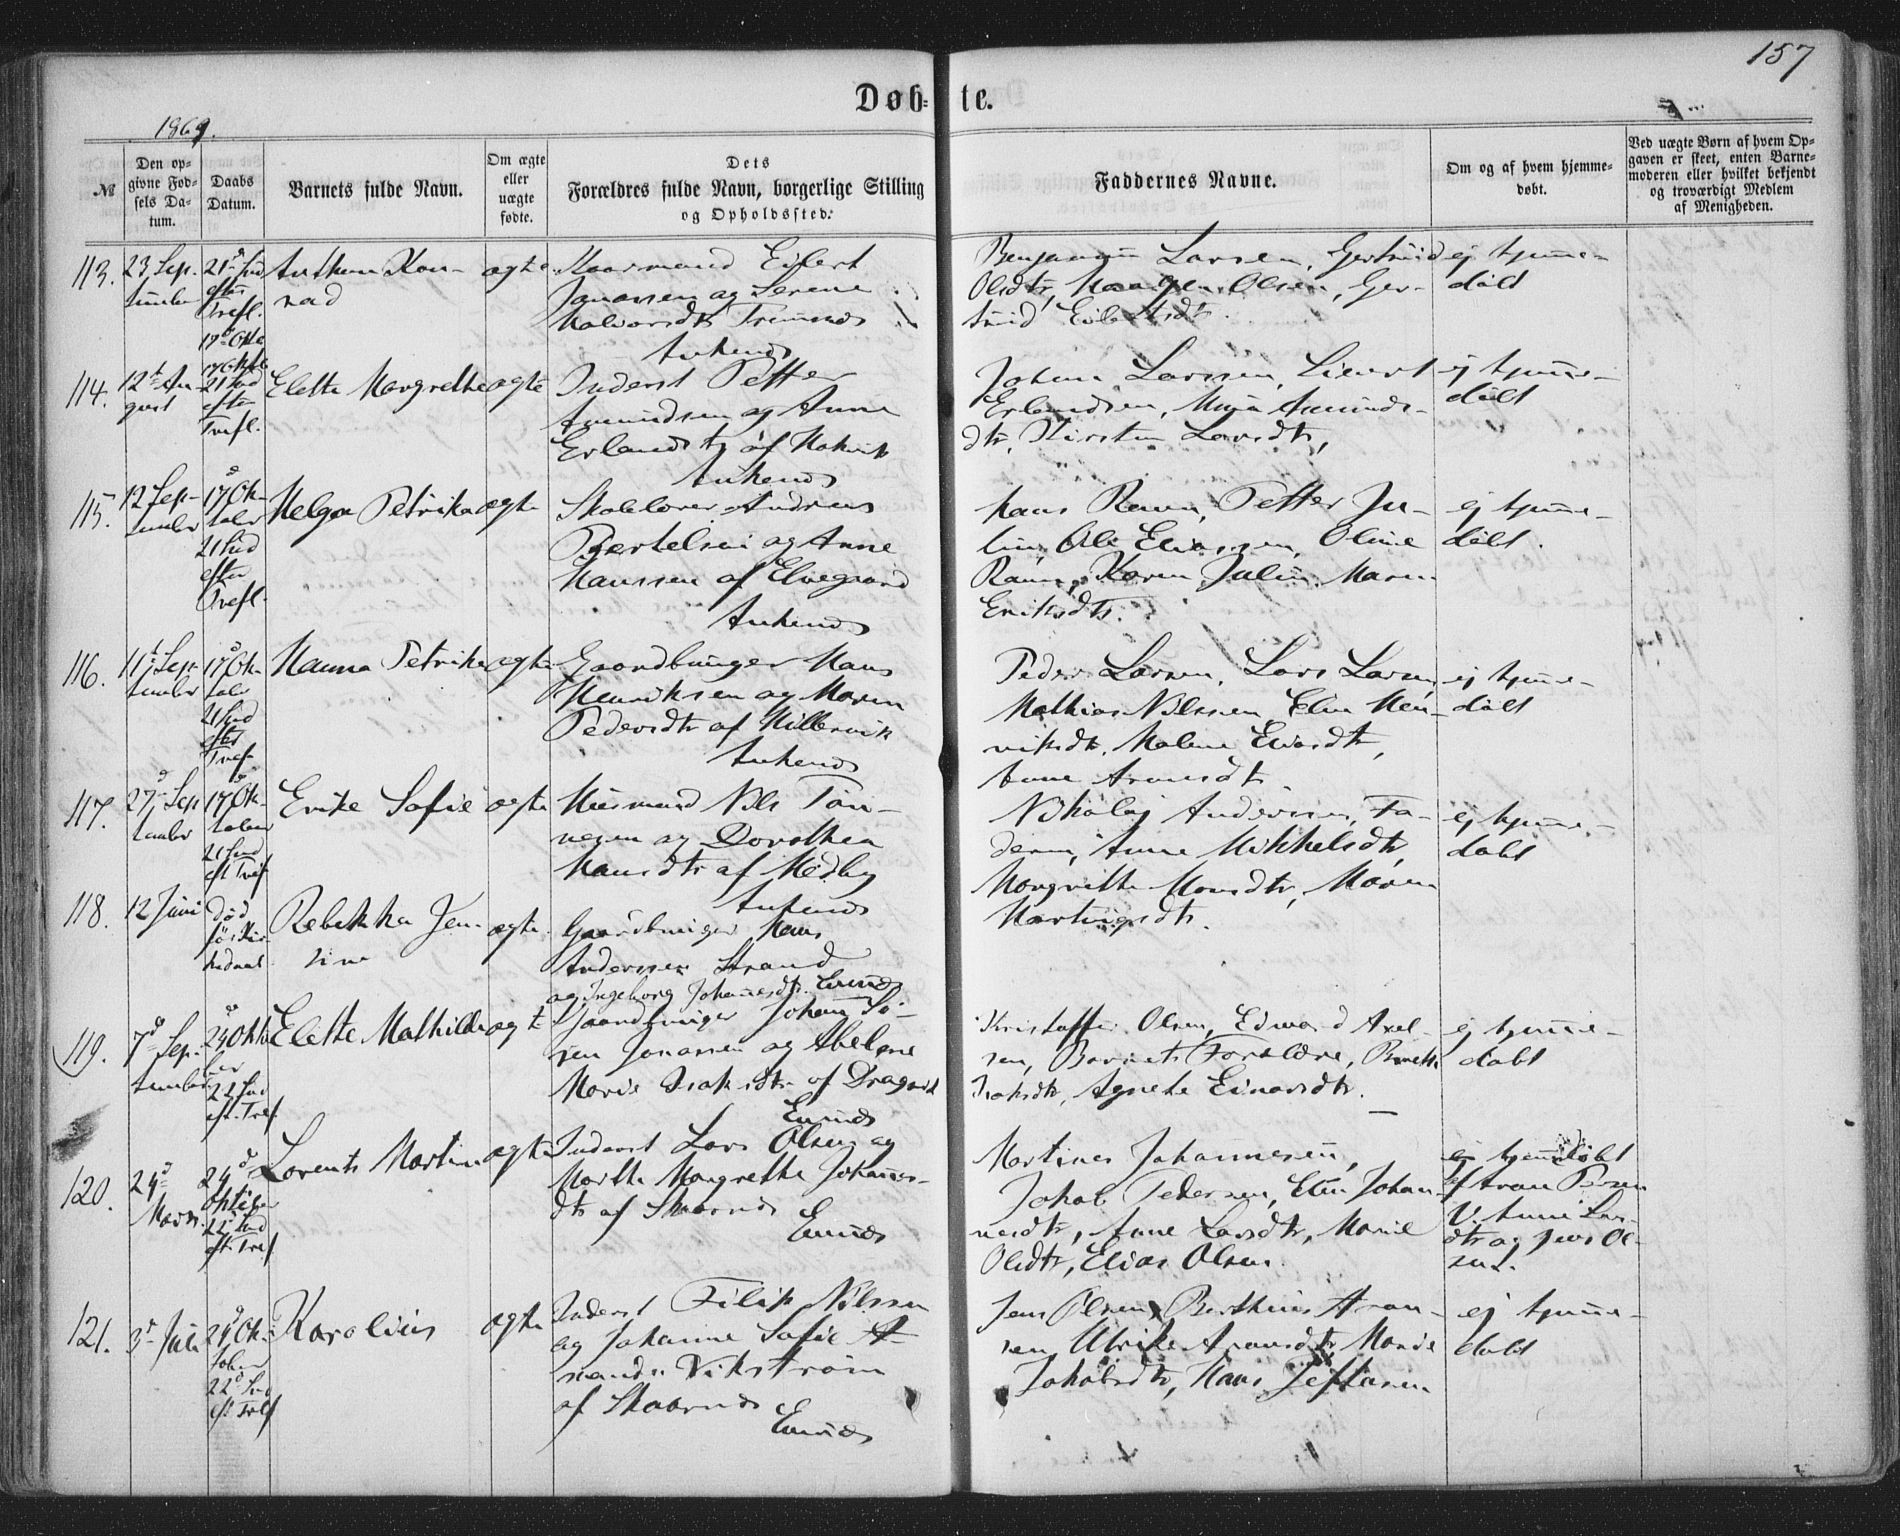 157
Døb-te.
1869.
№
Den op-
givne Fød-
sels Da-
tum.
Daabs
Datum.
Barnets fulde Navn.
Om ægte
eller
uægte
fødte.
Dets
Forældres fulde Navn, borgerlige Stilling
og Opholdssted.
Faddernes Navne.
Om og af hvem hjemme-
døbt.
Ved uægte Børn af hvem Op-
gaven er skeet, enten Barne-
moderen eller hvilket bekjendt
og troværdigt Medlem
af Menigheden.
113.
23 Sep-
tember
21 Sød
efter
Trefl.
Anthon Kon-
rad
ægte
Eifert
Jonassen og Serene
Halvorsdtr
Ankenæs
Benjamin Larsen, Gertrud
Olsdtr, Olsen, Ger-
trud
ej hjemme-
døbt
114.
12t Au-
gust
17 Okt
21 Sød
efter
Trefl.
Elette Margrethe
ægte
Inderst Petter
Amundsen og Anne
Erlandsdtr af
Ankenæs
Johan Larsen,
Erlandsen, Amunds-
dtr, Kirsten Larsdtr,
ej hjemme-
døbt
115.
12 Sep-
tember
17d Ok-
tober
21 Sød
efter
Trefl.
Helga Petrika
ægte
Skolelærer Andreas
Bertelsen og Anne
Hanssen af Elvegaard
Ankenæs
Hans Petter Ju-
Ole Eliassen, Oline
Karen Maren
Eriksdtr.
ej hjemme-
døbt.
116.
11t Sep-
tember
17d Ok-
tober
21 Sød
efter
Tref.
Hanna Petrike
ægte
Gaardbruger Hans
Henriksen og Maren
Pedersdtr af Hillesvik
Ankenæs
Peder Larsen, Lars Larsen,
Mathias Nilssen, Elen Hen-
riksdtr, Malene
Anne Aronsdtr
ej hjemme-
døbt
117.
27d Sep-
tember
17d Ok-
tober
21 Sød
eft Tref
Erike Sofie
ægte
Husmand Nils Tøn-
nesen og Dorothea
Hansdtr af Medby
Ankenæs
Nikolaj Andersen, Fa-
deren, Anne Mikkelsdtr,
Margrethe Hansdtr, Maren
Hartvigsdtr.
ej hjemme-
døbt
118.
12 Juni
Død
før Kir-
kedaab
Rebekka Jen-
sine
ægte
Gaardbruger Hans
Andersen Strand
og Ingeborg Johannesdtr. Evenæs
119.
7d Sep-
tember
24 Okto-
ber
22 Sød
eft. Tref.
Elette Mathilde
ægte
Gaardbruger Johan Sø-
ren Jonassen og Abelone
Marie Isaksdtr af Dragvik
Evenæs
Kristoffer Olsen, Edward Axel-
sen, Barnets Forældre, Berethe
Isaksdtr, Agnete Einarsdtr.
ej hjemme-
døbt
120.
24d
Marts
24d
Oktober
22 Sød
eft. Tref
Lorents Martin
ægte
Inderst Lars Olsen og
Marthe Margrethe Johannes-
dtr af Skaarnæs
Evenæs
Martines Johannesen,
Jakob Pedersen, Elen Johan-
nesdtr, Anne Larsdtr, Marie
Olsdtr, Elias Olsen.
hjemmedøbt
af Aron
Anne Lars-
dtr og Jens Ol-
sen.
121.
3d Juli
24d Ok-
tober
22d Sød
eft. Tref
Karolius
ægte
Inderst Filip Nilssen
og Johanne Sofie A-
mandu Vikstrøm
af Skaarnæs
Evenæs
Jens Olsen, Berthius Aron-
sen, Ulrike Aronsdtr, Marie
Jakobsdtr, Hans Jeftasen
ej hjemme-
døbt